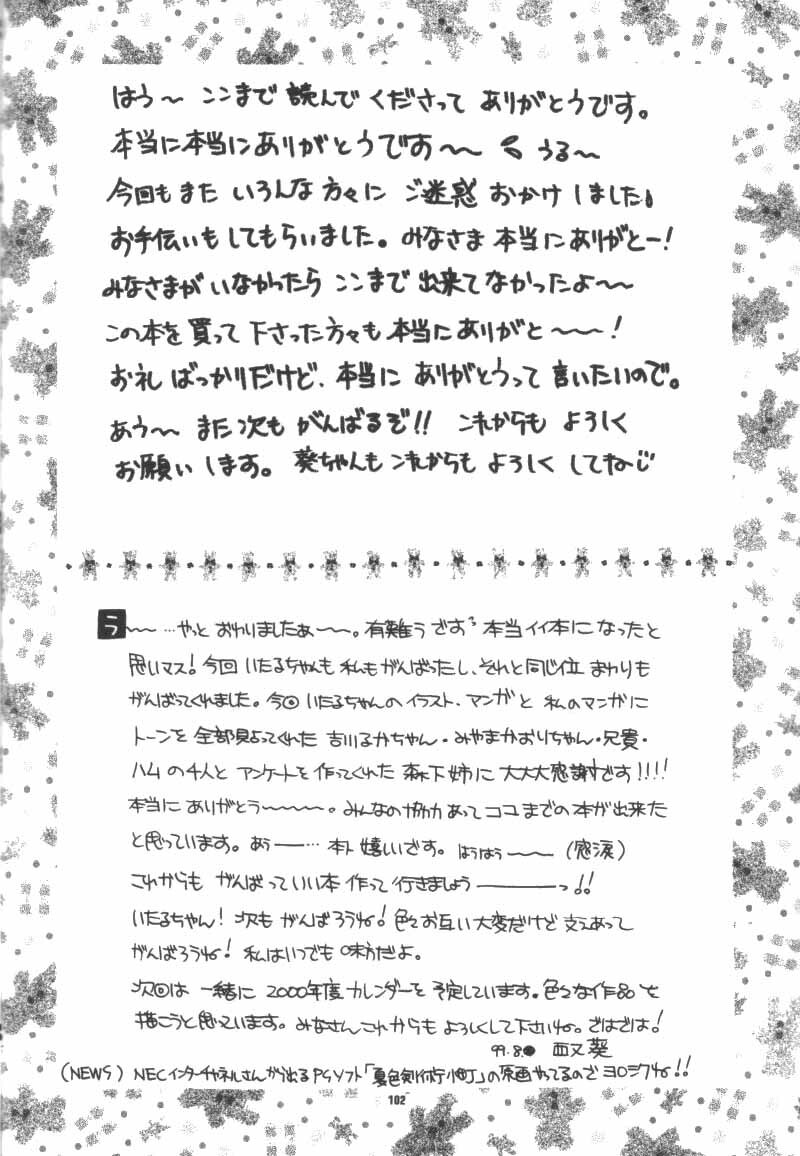 はう〜 ここまで 読んで くださって ありがとうです。
本当に本当にありがとうですの〜〜 うる〜
今回もまた いろんな方々に ご迷惑 おかけしました。
お手伝いもしてもらいました。みなさま 本当にありがとー!
みなさまがいなかったら ここまで 出来てなかったよ〜〜
この本を買って下さった方々も本当にありがと〜〜!
お礼ばっかりだけど、本当に ありがとうって言いたいので。
あう〜 また次も がんばるぞ!! これからも よろしく
お願いします。葵ちゃんも これからも よろしく してね
う〜〜…やっと おわりましたぁ〜〜。有難う ござます 本当イイ本になったと
思いマス!今回 いたるちゃんも 私もがんばったし、それと同じ位 まわりも
がんばってくれました。今回 いたるちゃんの イラスト、マンガと 私のマンガに
トーンを 全部貼ってくれた 吉川るかちゃん・みやまかおりちゃん・兄貴・
ハムの4人と アンケートを作ってくれた 森下姉に 大大大感謝です!!!!
本当に ありがとう〜〜〜〜。みんなの協力あって ココまでの本が出来た
と思っています。あぅ――… 嬉しいです。はうはう〜〜(感涙)
これからも がんばっていい本 作って行きましょう―――っ!!
いたるちゃん!次も がんばろうね!色々お互い大変だけど 支えあって
がんばろうね!私はいつでも 味方だよ。
次回は 一緒に 2000年度 カレンダーを予定しています。色々な作品を
描こうと思っています。みなさんこれからも よろしくして下さいね。ではでは!
99.8. 葵
(NEWS) NECインターチャネルさんから出るPSソフト「夏色剣術小町」の原画やってるので ヨロシクね!!
102